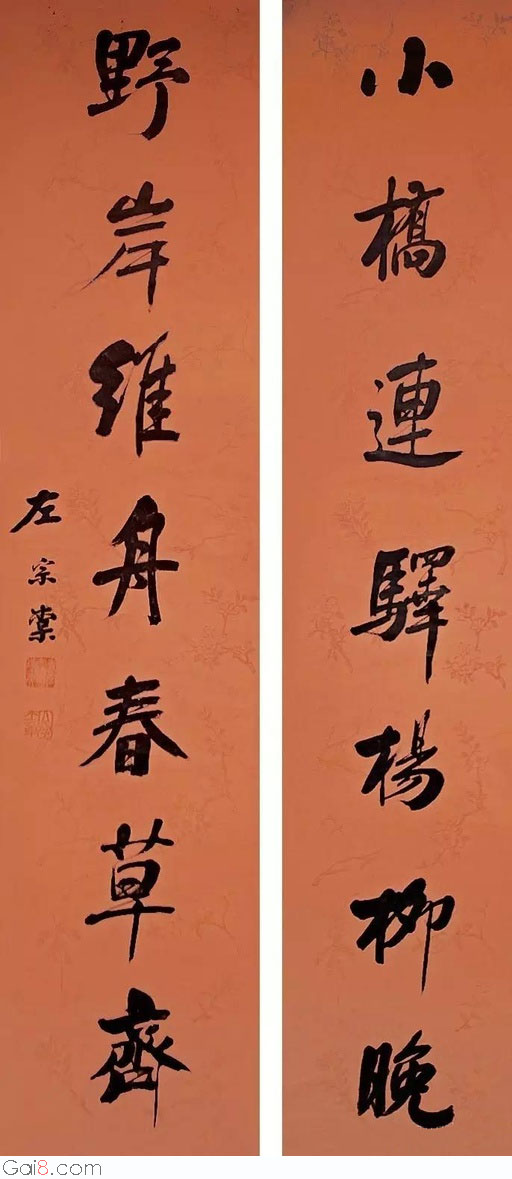 小橋連驛楊柳晚
野岸維舟春草齊
左宗棠
Gai8.com